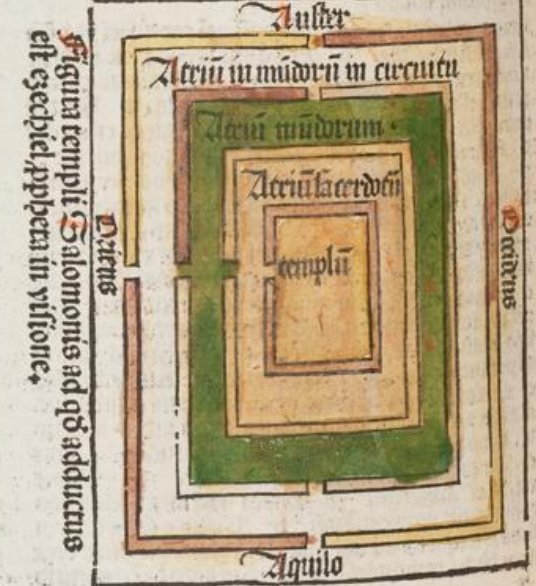 Auster
Atriū in mūdorū in circuitu
Atriū mūdorum.
Atriū sacerdotū
templū
Oriens
Occidens
Aquilo
Figura templi Salomonis ad qď adductus
est ezechiel ꝓpheta in visione.